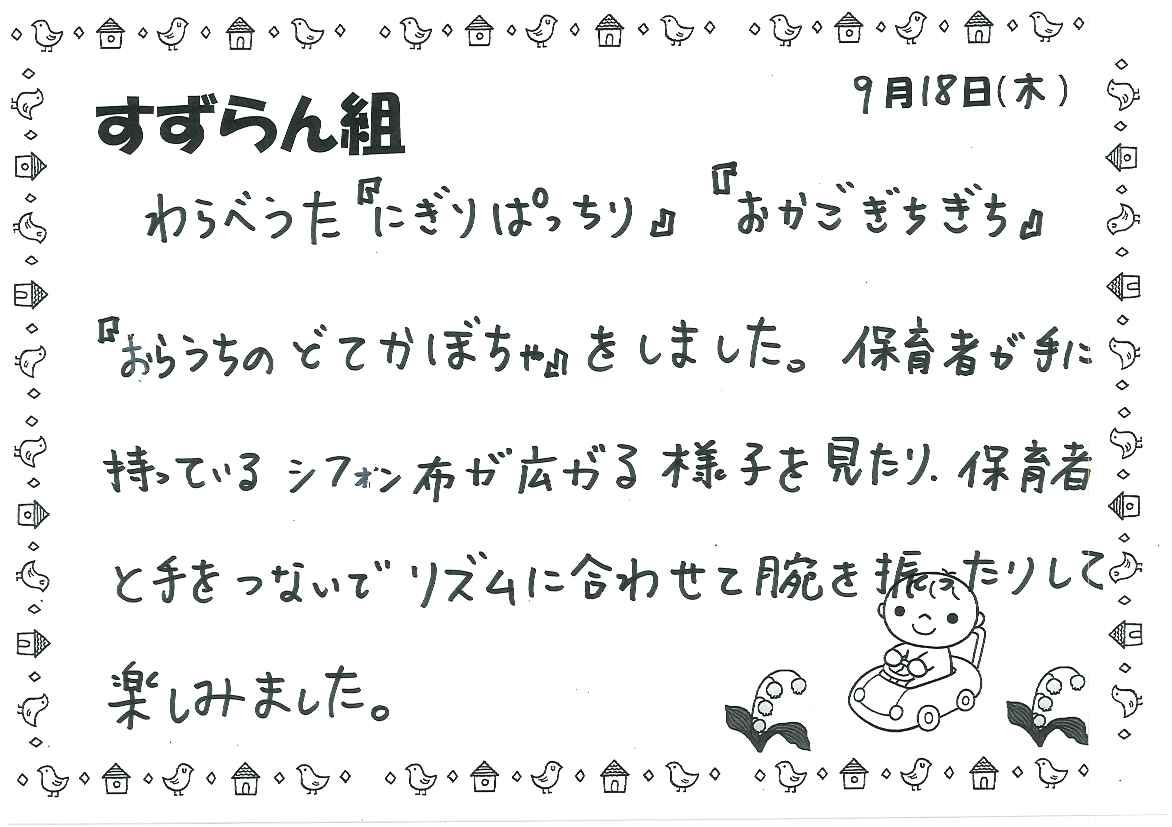 9月18日(木)
すずらん組
わらべうた『にぎりぱっちり』 『おかごぎちぎち』
『おらうちのどてかぼちゃ』をしました。保育者が手に
持っているシフォン布が広がる様子を見たり、保育者
と手をつないでリズムに合わせて腕を振ったりして
楽しみました。